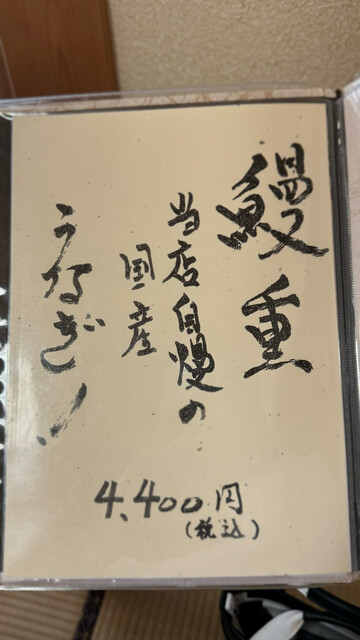 鰻重
当店自慢の
国産
うなぎ!
4,400円
(税込)